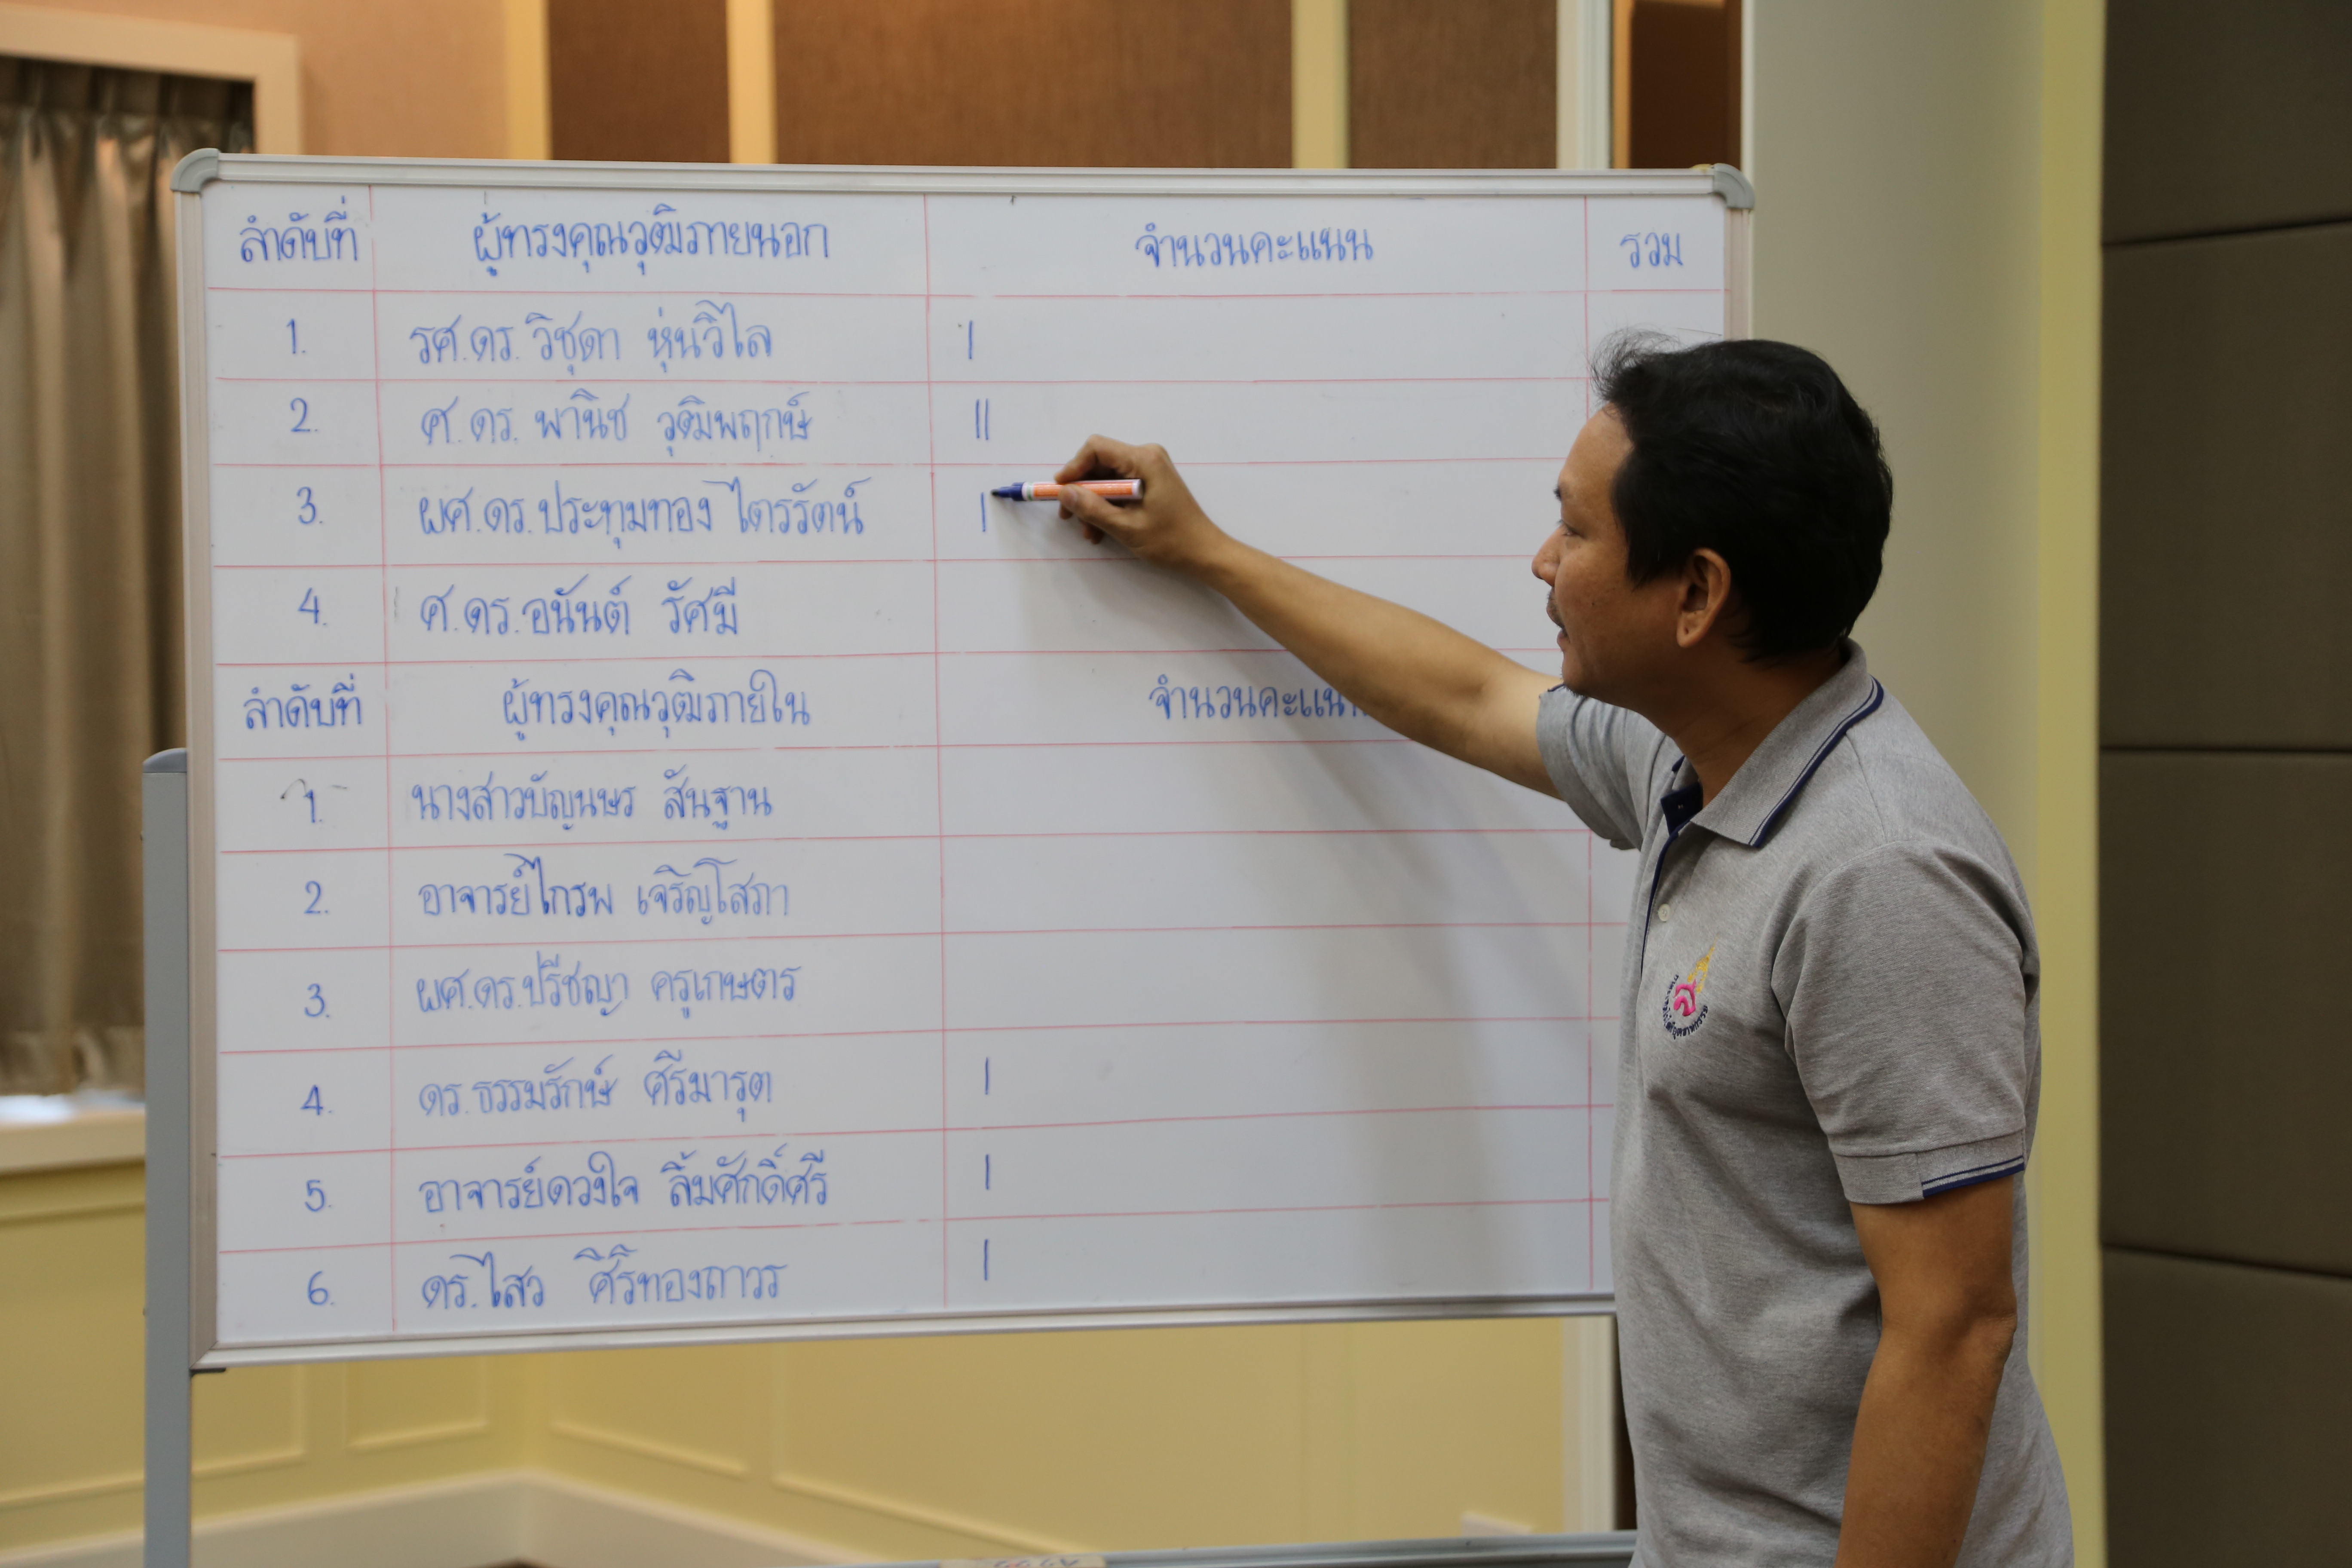 ลำดับที่ ผู้ทรงคุณวุฒิภายนอก จำนวนคะแนน รวม
1. รศ.ดร.วิชุดา หุ่นวิไล I
2. ศ.ดร.พานิช วุฒิพฤกษ์ II
3. ผศ.ดร.ประทุมทอง ไตรรัตน์ I
4. ศ.ดร.อนันต์ รัศมี
ลำดับที่ ผู้ทรงคุณวุฒิภายใน จำนวนคะแนน
1. นางสาวบัญนษร สันฐาน
2. อาจารย์ไกรพ เจริญโสภา
3. ผศ.ดร.ปรีชญา ครูเกษตร
4. ดร.ธรรมรักษ์ ศรีมารุต I
5. อาจารย์ดวงใจ ลิ้มศักดิ์ศรี I
6. ดร.ไสว ศิริทองถาวร I